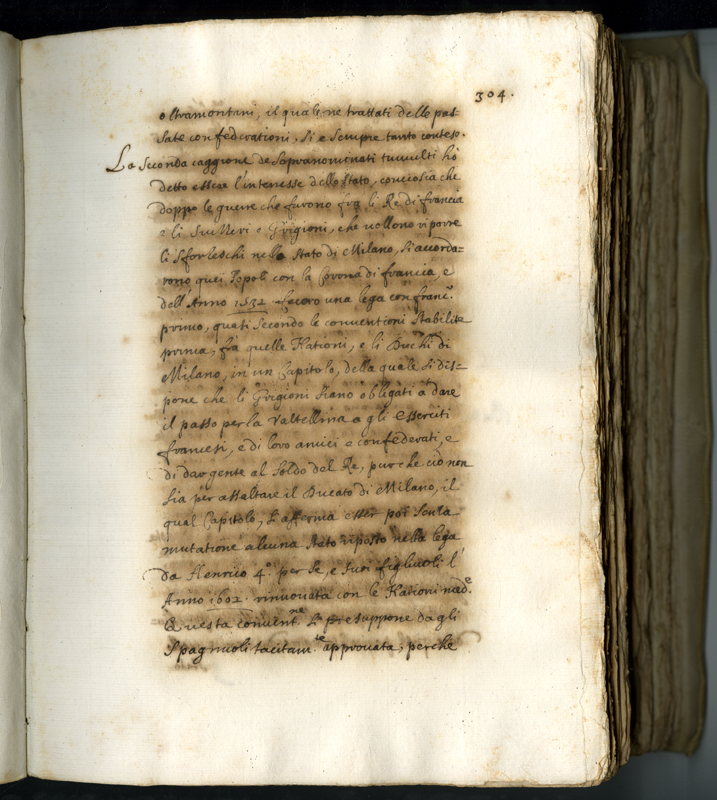 304.
oltramontani, il quale ne trattati delle pas
sate confederationi, si è sempre tanto conteso.
La seconda caggione de sopranominati tumulti hò
detto essere l'interesse dello stato, conciosia che
doppo le guerre che furono frà li Re di francia
e li Suizzeri e Grigioni, che uollono riporre
li Sforzeschi nello Stato di Milano, si accorda=
rono quei Popoli con la Corona di francia, e
dell'Anno 1532 fecero una lega con franc.º
primo, quasi secondo le conventioni stabilite
prima, frà quelle Nationi, e li Duchi di
Milano, in un Capitolo, della quale si dis=
pone che li Grigioni siano obligati à dare
il passo per la Valtellina a gli esserciti
francesi, e di loro amici e confederati, e
di dar gente al soldo del Re, pur che ciò non
sia per assaltare il Ducato di Milano, il
qual Capitolo, s'afferma esser poi senza
mutatione alcuna stato riposto nella lega
da Henrico 4º per se, e suoi figliuoli l'
Anno 1602. rinuouata con le Nationi med.e
Questa conuent.ne si presuppone da gli
Spagnuoli tacitam.te approuata, perche